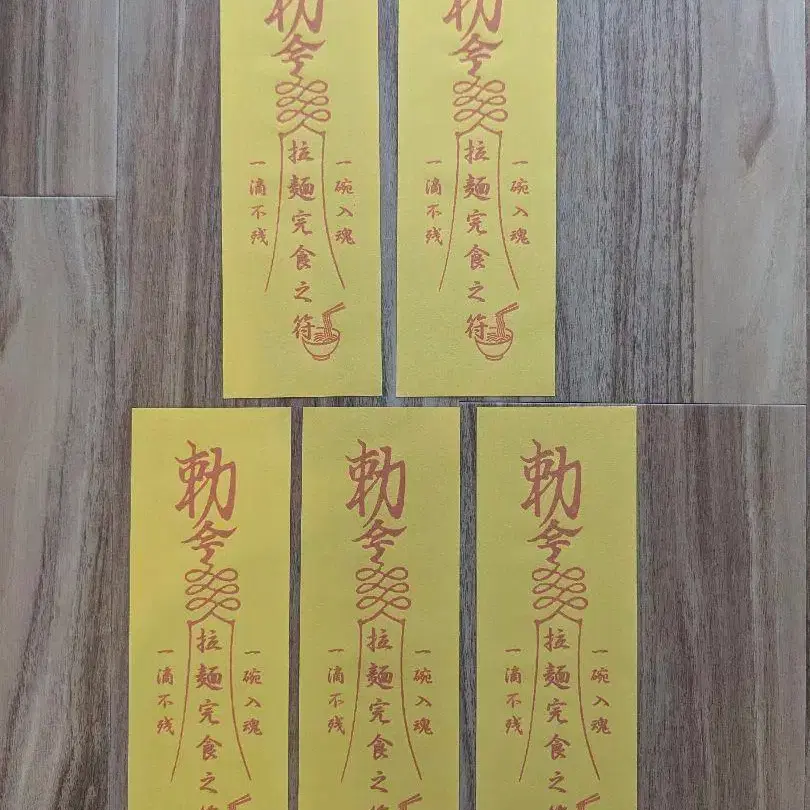 勅令
一碗入魂
拉麺完食之符
一滴不残
勅令
一碗入魂
拉麺完食之符
一滴不残
勅令
一碗入魂
拉麺完食之符
一滴不残
勅令
一碗入魂
拉麺完食之符
一滴不残
勅令
一碗入魂
拉麺完食之符
一滴不残